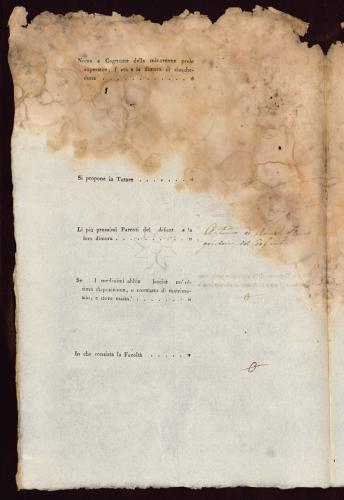 Nome e Cognome della minorenne prole
superstite, l' età e la dimora di ciasche-
duna . . . . . . . . . . . "
Si propone in Tutore . . . . . . . "
Li più prossimi Parenti del defunt e la
loro dimora . . . . . . . . "
Se l medesim abbia lasciat un' ul-
tima disposizione, o contratto di matrimo-
nio, e dove esista. . . . . . . "
In che consista la Facoltà . . . . . . "